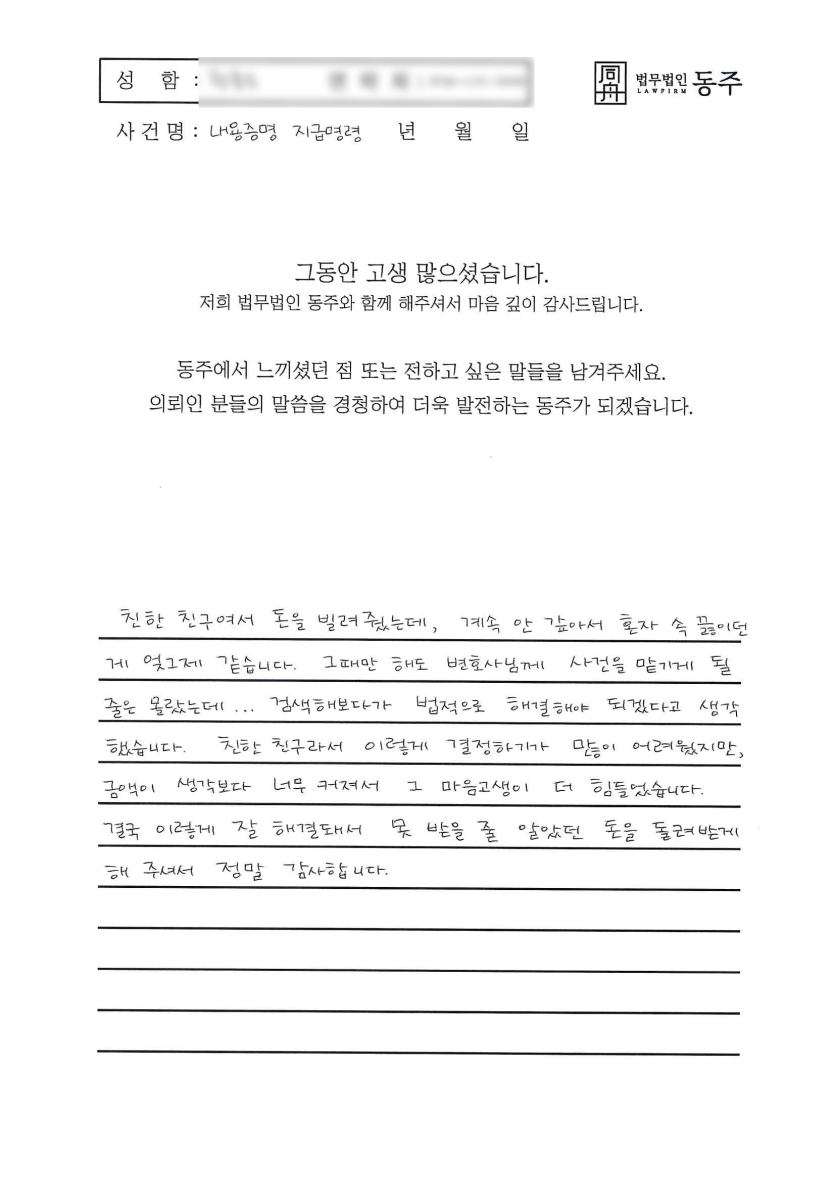 성 함 :
同舟 법무법인 동주
LAWFIRM
사건명 : 내용증명 지급명령 년 월 일
그동안 고생 많으셨습니다.
저희 법무법인 동주와 함께 해주셔서 마음 깊이 감사드립니다.
동주에서 느끼셨던 점 또는 전하고 싶은 말들을 남겨주세요.
의뢰인 분들의 말씀을 경청하여 더욱 발전하는 동주가 되겠습니다.
친한 친구여서 돈을 빌려줬는데, 계속 안 갚아서 혼자 속 끓이던
게 엊그제 같습니다. 그때만 해도 변호사님께 사건을 맡기게 될
줄은 몰랐는데... 검색해보다가 법적으로 해결해야 되겠다고 생각
했습니다. 친한 친구라서 이렇게 결정하기가 많이 어려웠지만,
금액이 생각보다 너무 커져서 그 마음고생이 더 힘들었습니다.
결국 이렇게 잘 해결돼서 못 받을 줄 알았던 돈을 돌려받게
해 주셔서 정말 감사합니다.